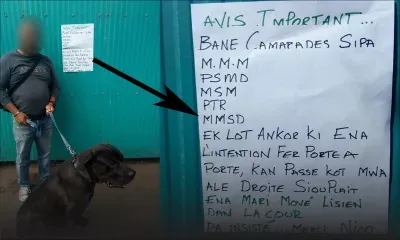 AVIS IMPORTANT...
BANE CAMARADES SIPA
M.M.M
PSMD
MSM
PTR
MMSD
EK LOT ANKOR KI ENA
L'INTENTION FER PORTE A
PORTE, KAN PASSE KOT MWA
ALE DROITE SIOUPLAIT
ENA MARI MONÉ LISIEN
DAN LA COUR
PA INSISTE MERCI NICO